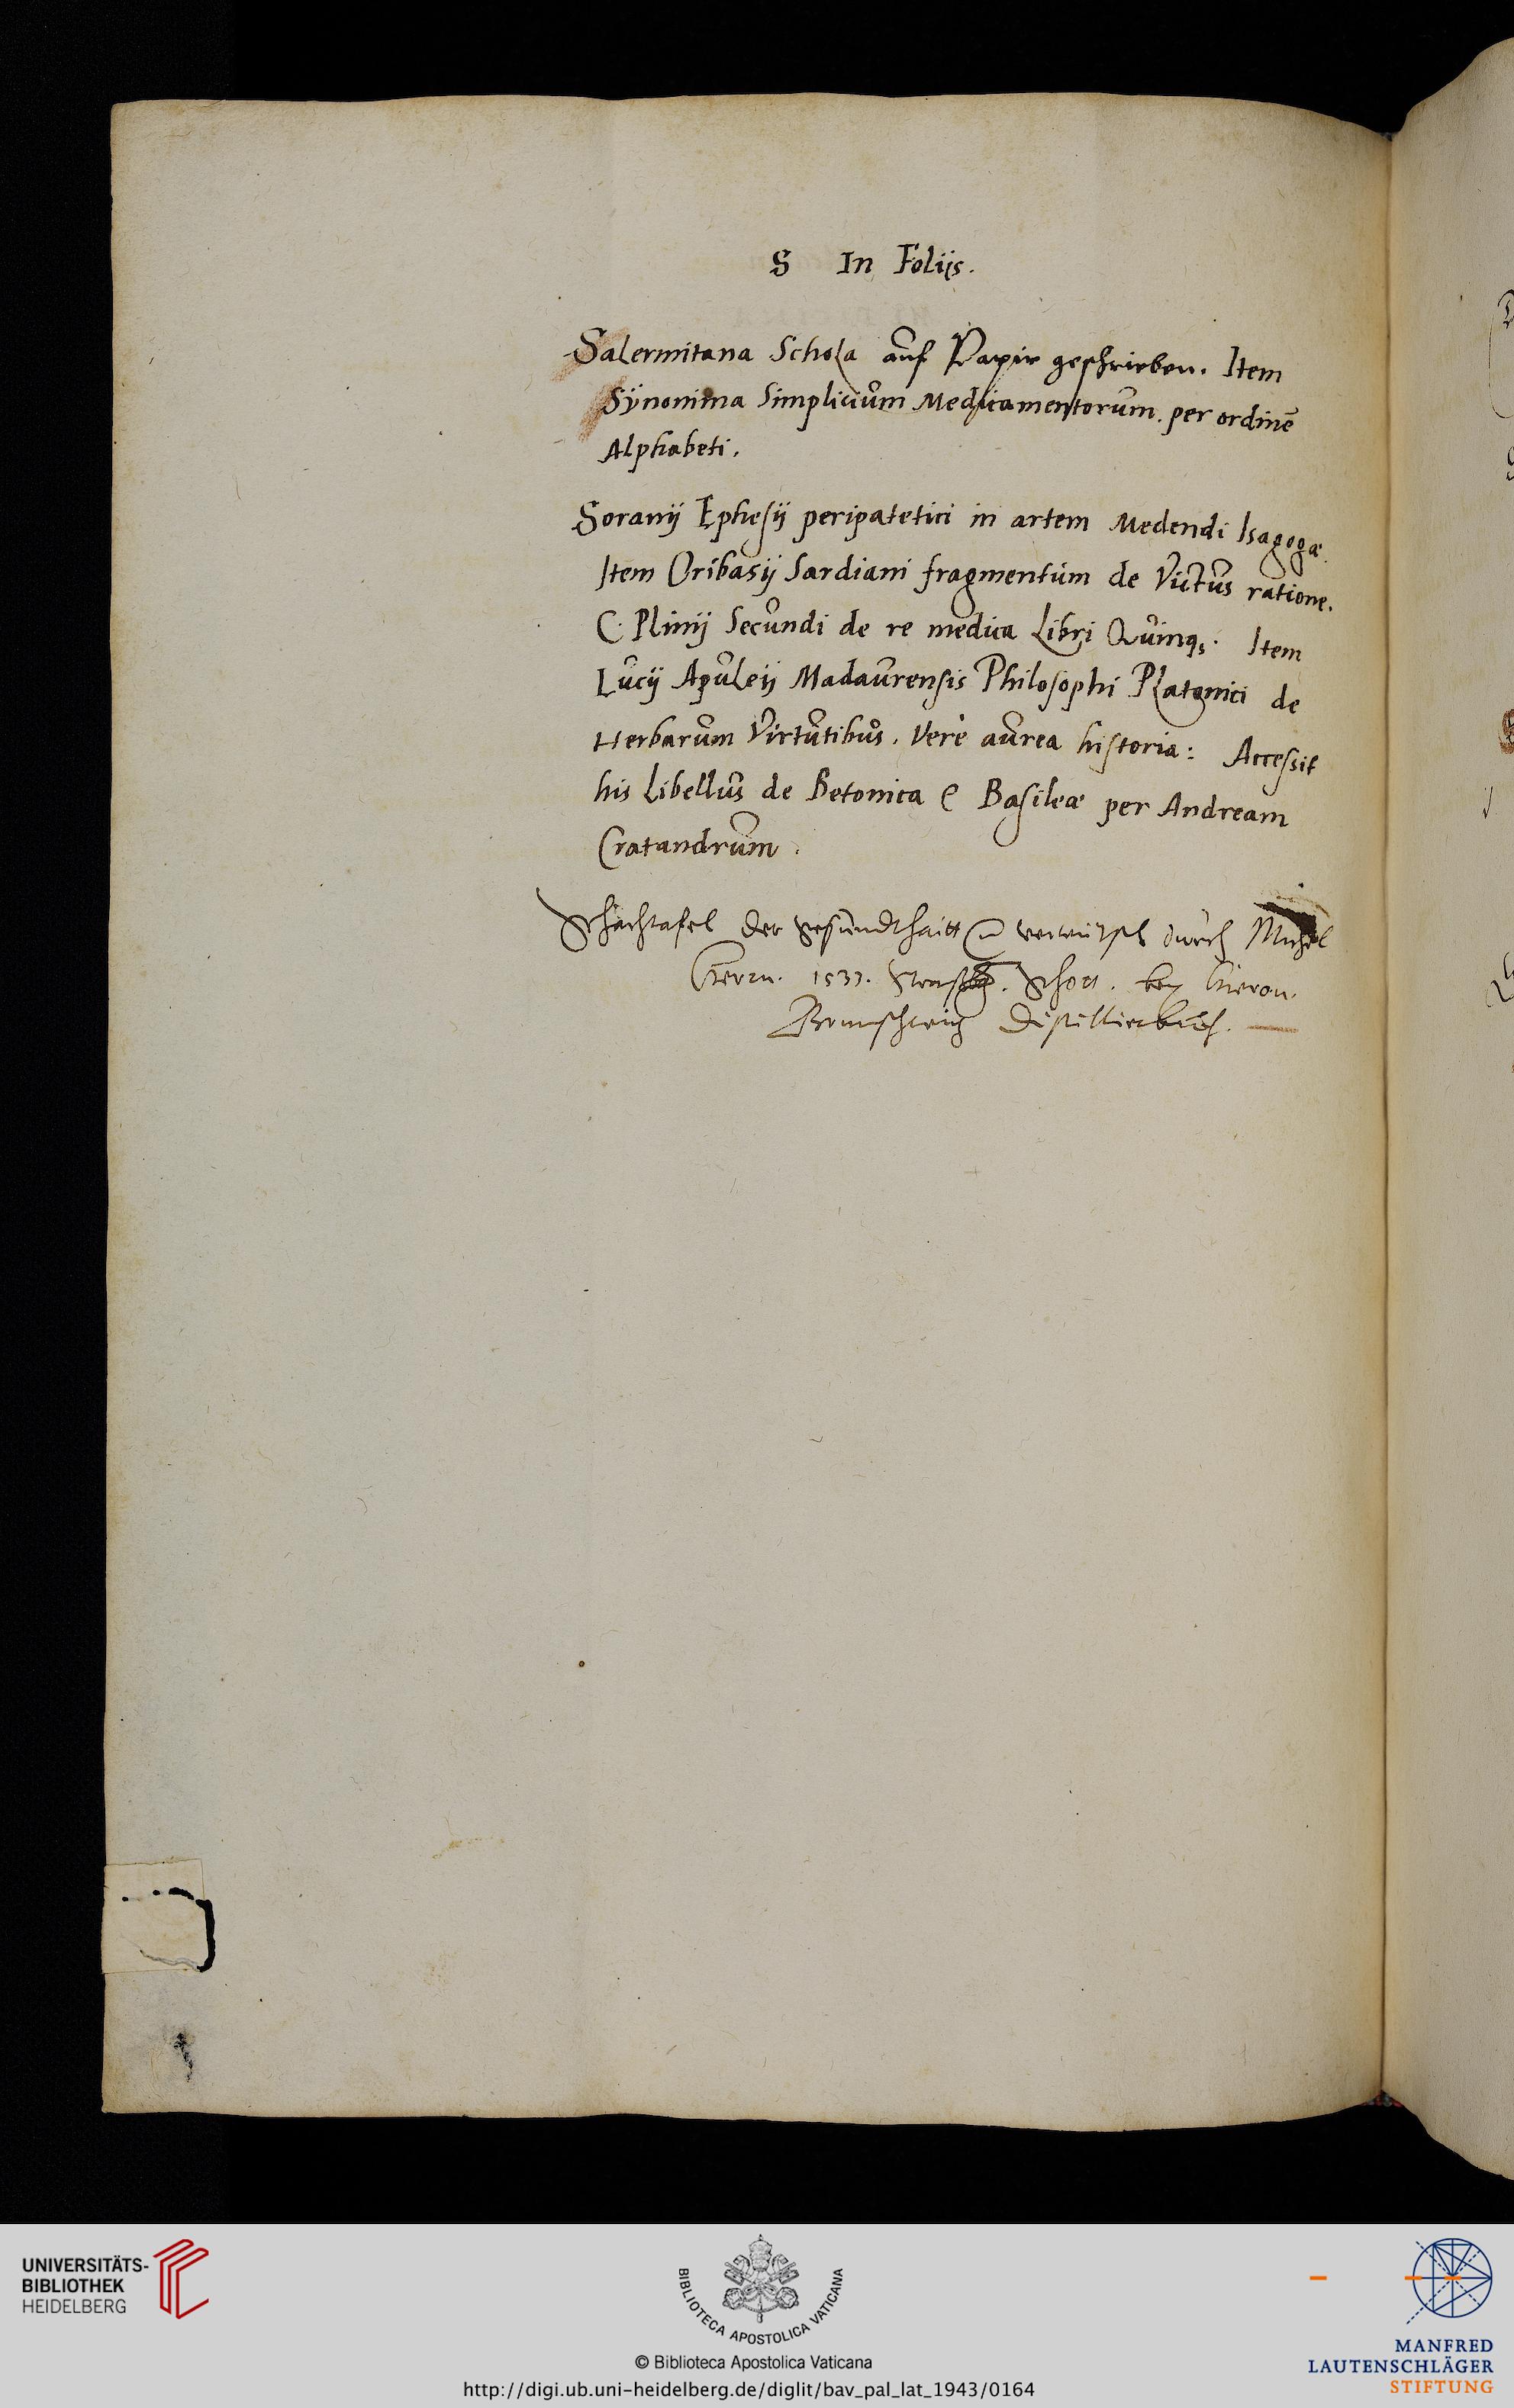 S In Folijs.
Salernitana Schola auf Papir geschrieben. Item
Synonima Simplicium Medicamentorum. per ordinē
Alphabeti.
Soranij Ephesij peripatetici in artem Medendi Isagogæ.
Item Oribasij Sardiani fragmentum de Victus ratione.
C. Plinij Secundi de re medica Libri Quinq;. Item
Lucij Apuleij Madaurensis Philosophi Platonici de
Herbarum Virtutibus. Verè aurea historia: Accessit
his Libellus de Betonica &c Basileæ per Andream
Cratandrum.
Schachtafel der gesundthaitt durch Michel
Herrn. 1533. Schott. bey Hieron.
Brunschweig Distillierbuch.
UNIVERSITÄTS-
BIBLIOTHEK
HEIDELBERG
BIBLIOTECA APOSTOLICA VATICANA
© Biblioteca Apostolica Vaticana
http://digi.ub.uni-heidelberg.de/diglit/bav_pal_lat_1943/0164
MANFRED
LAUTENSCHLÄGER
STIFTUNG